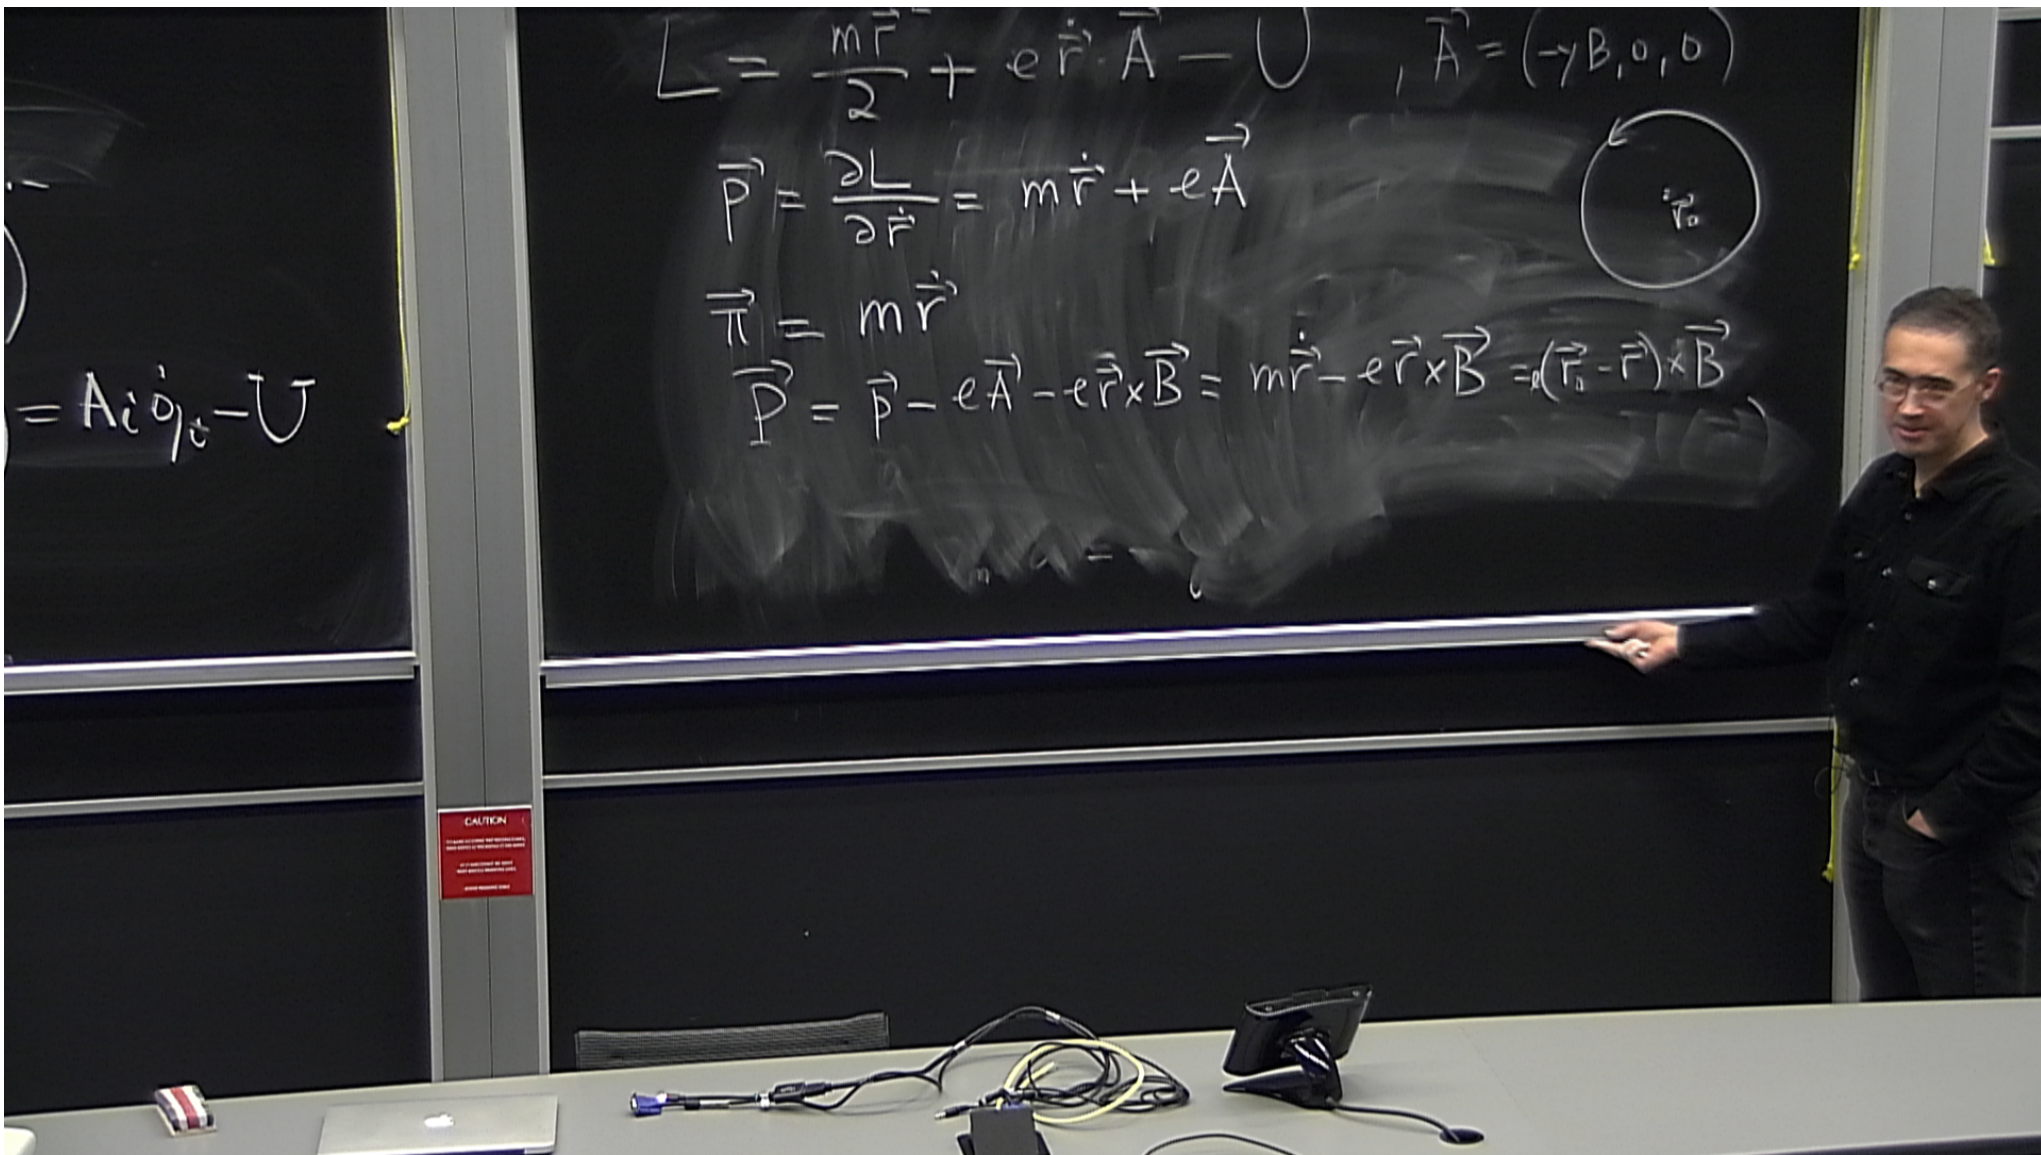 = A_i q̇_i - U
L = m ṙ⃗ ² / 2 + e ṙ⃗ · A⃗ - U , A⃗ = (-yB, 0, 0)
p⃗ = ∂L / ∂ṙ⃗ = m ṙ⃗ + e A⃗
r⃗₀
π⃗ = m ṙ⃗
P⃗ = p⃗ - e A⃗ - e r⃗ × B⃗ = m ṙ⃗ - e r⃗ × B⃗ = e(r⃗₀ - r⃗) × B⃗
CAUTION